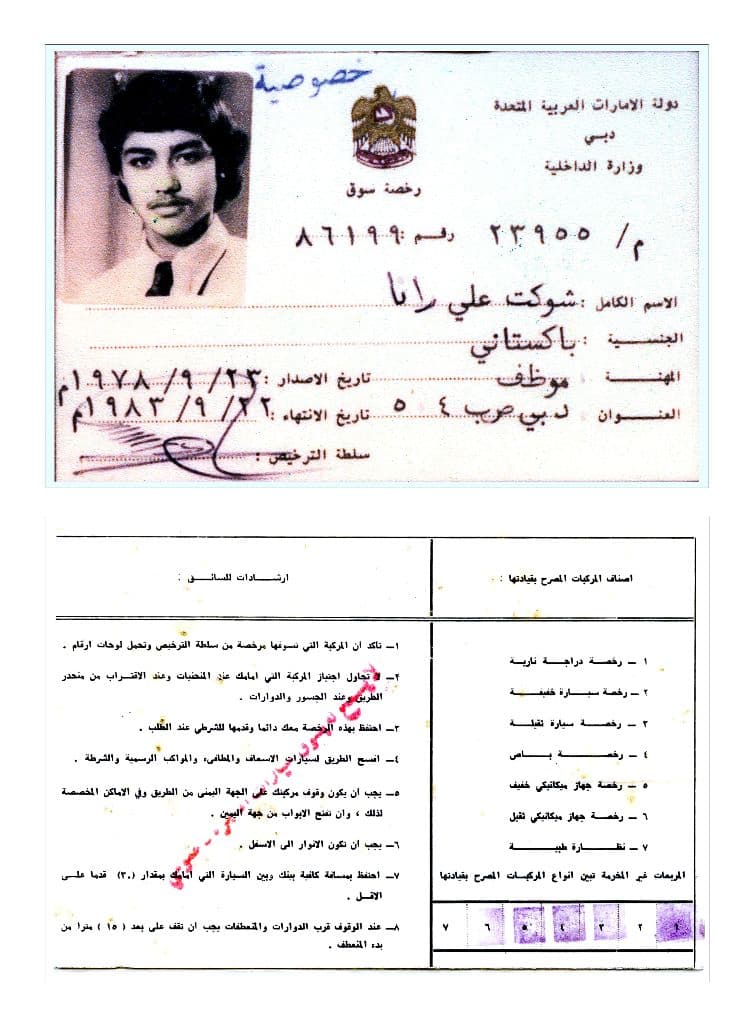 خصوصية
دولة الامارات العربية المتحدة
دبي
وزارة الداخلية
رخصة سوق
م/ ٢٣٩٥٥ رقم: ٨٦١٩٩
الاسم الكامل : شوكت علي رانا
الجنسية : باكستاني
المهنة : موظف
تاريخ الاصدار : ٢٣/٩/١٩٧٨م
العنوان : دبي ص ب ٤٠٥
تاريخ الانتهاء : ٢٢/٩/١٩٨٣م
سلطة الترخيص :
اصناف المركبات المصرح بقيادتها :
١ ـ رخصة دراجة نارية
٢ ـ رخصة سيارة خفيفة
٣ ـ رخصة سيارة ثقيلة
٤ ـ رخصة باص
٥ ـ رخصة جهاز ميكانيكي خفيف
٦ ـ رخصة جهاز ميكانيكي ثقيل
٧ ـ نظارة طبية
المربعات غير المخرمة تبين انواع المركبات المصرح بقيادتها
١ ٢ ٣ ٤ ٥ ٦ ٧
ارشادات للسائق :
١ـ تأكد أن المركبة التي تسوقها مرخصة من سلطة الترخيص وتحمل لوحات ارقام .
٢ـ لا تحاول اجتياز المركبة التي امامك عند المنحنيات وعند الاقتراب من منحدر
الطريق وعند الجسور والدوارات .
٣ـ احتفظ بهذه الرخصة معك دائما وقدمها للشرطي عند الطلب .
٤ـ افسح الطريق لسيارات الاسعاف والمطافىء والمواكب الرسمية والشرطة .
٥ـ يجب ان يكون وقوف مركبتك على الجهة اليمنى من الطريق وفي الاماكن المخصصة
لذلك ، وان تفتح الابواب من جهة اليمين .
٦ـ يجب أن تكون الانوار الى الاسفل .
٧ـ احتفظ بمسافة كافية بينك وبين السيارة التي امامك بمقدار (٣٠) قدما على
الاقل .
٨ـ عند الوقوف قرب الدوارات والمنعطفات يجب أن تقف على بعد ( ١٥ ) مترا من
بدء المنعطف .
لا يسمح له بسوق سيارات